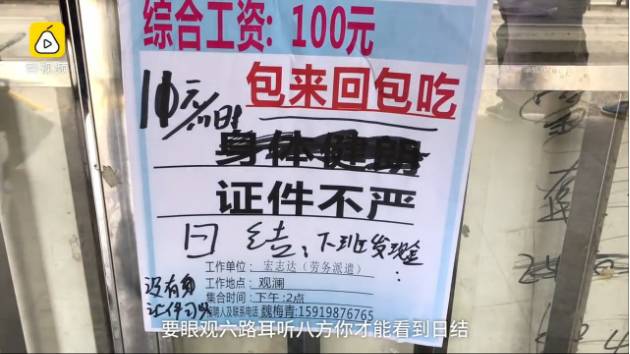 梨视频
综合工资: 100元
10元/小时
包来回包吃
身体健朗
证件不严
日结: 下班发现金
工作单位: 宏志达 (劳务派遣)
没有身
工作地点: 观澜
集合时间: 下午:2点
聘人及联系电话 魏梅青:15919876765
要眼观六路耳听八方你才能看到日结